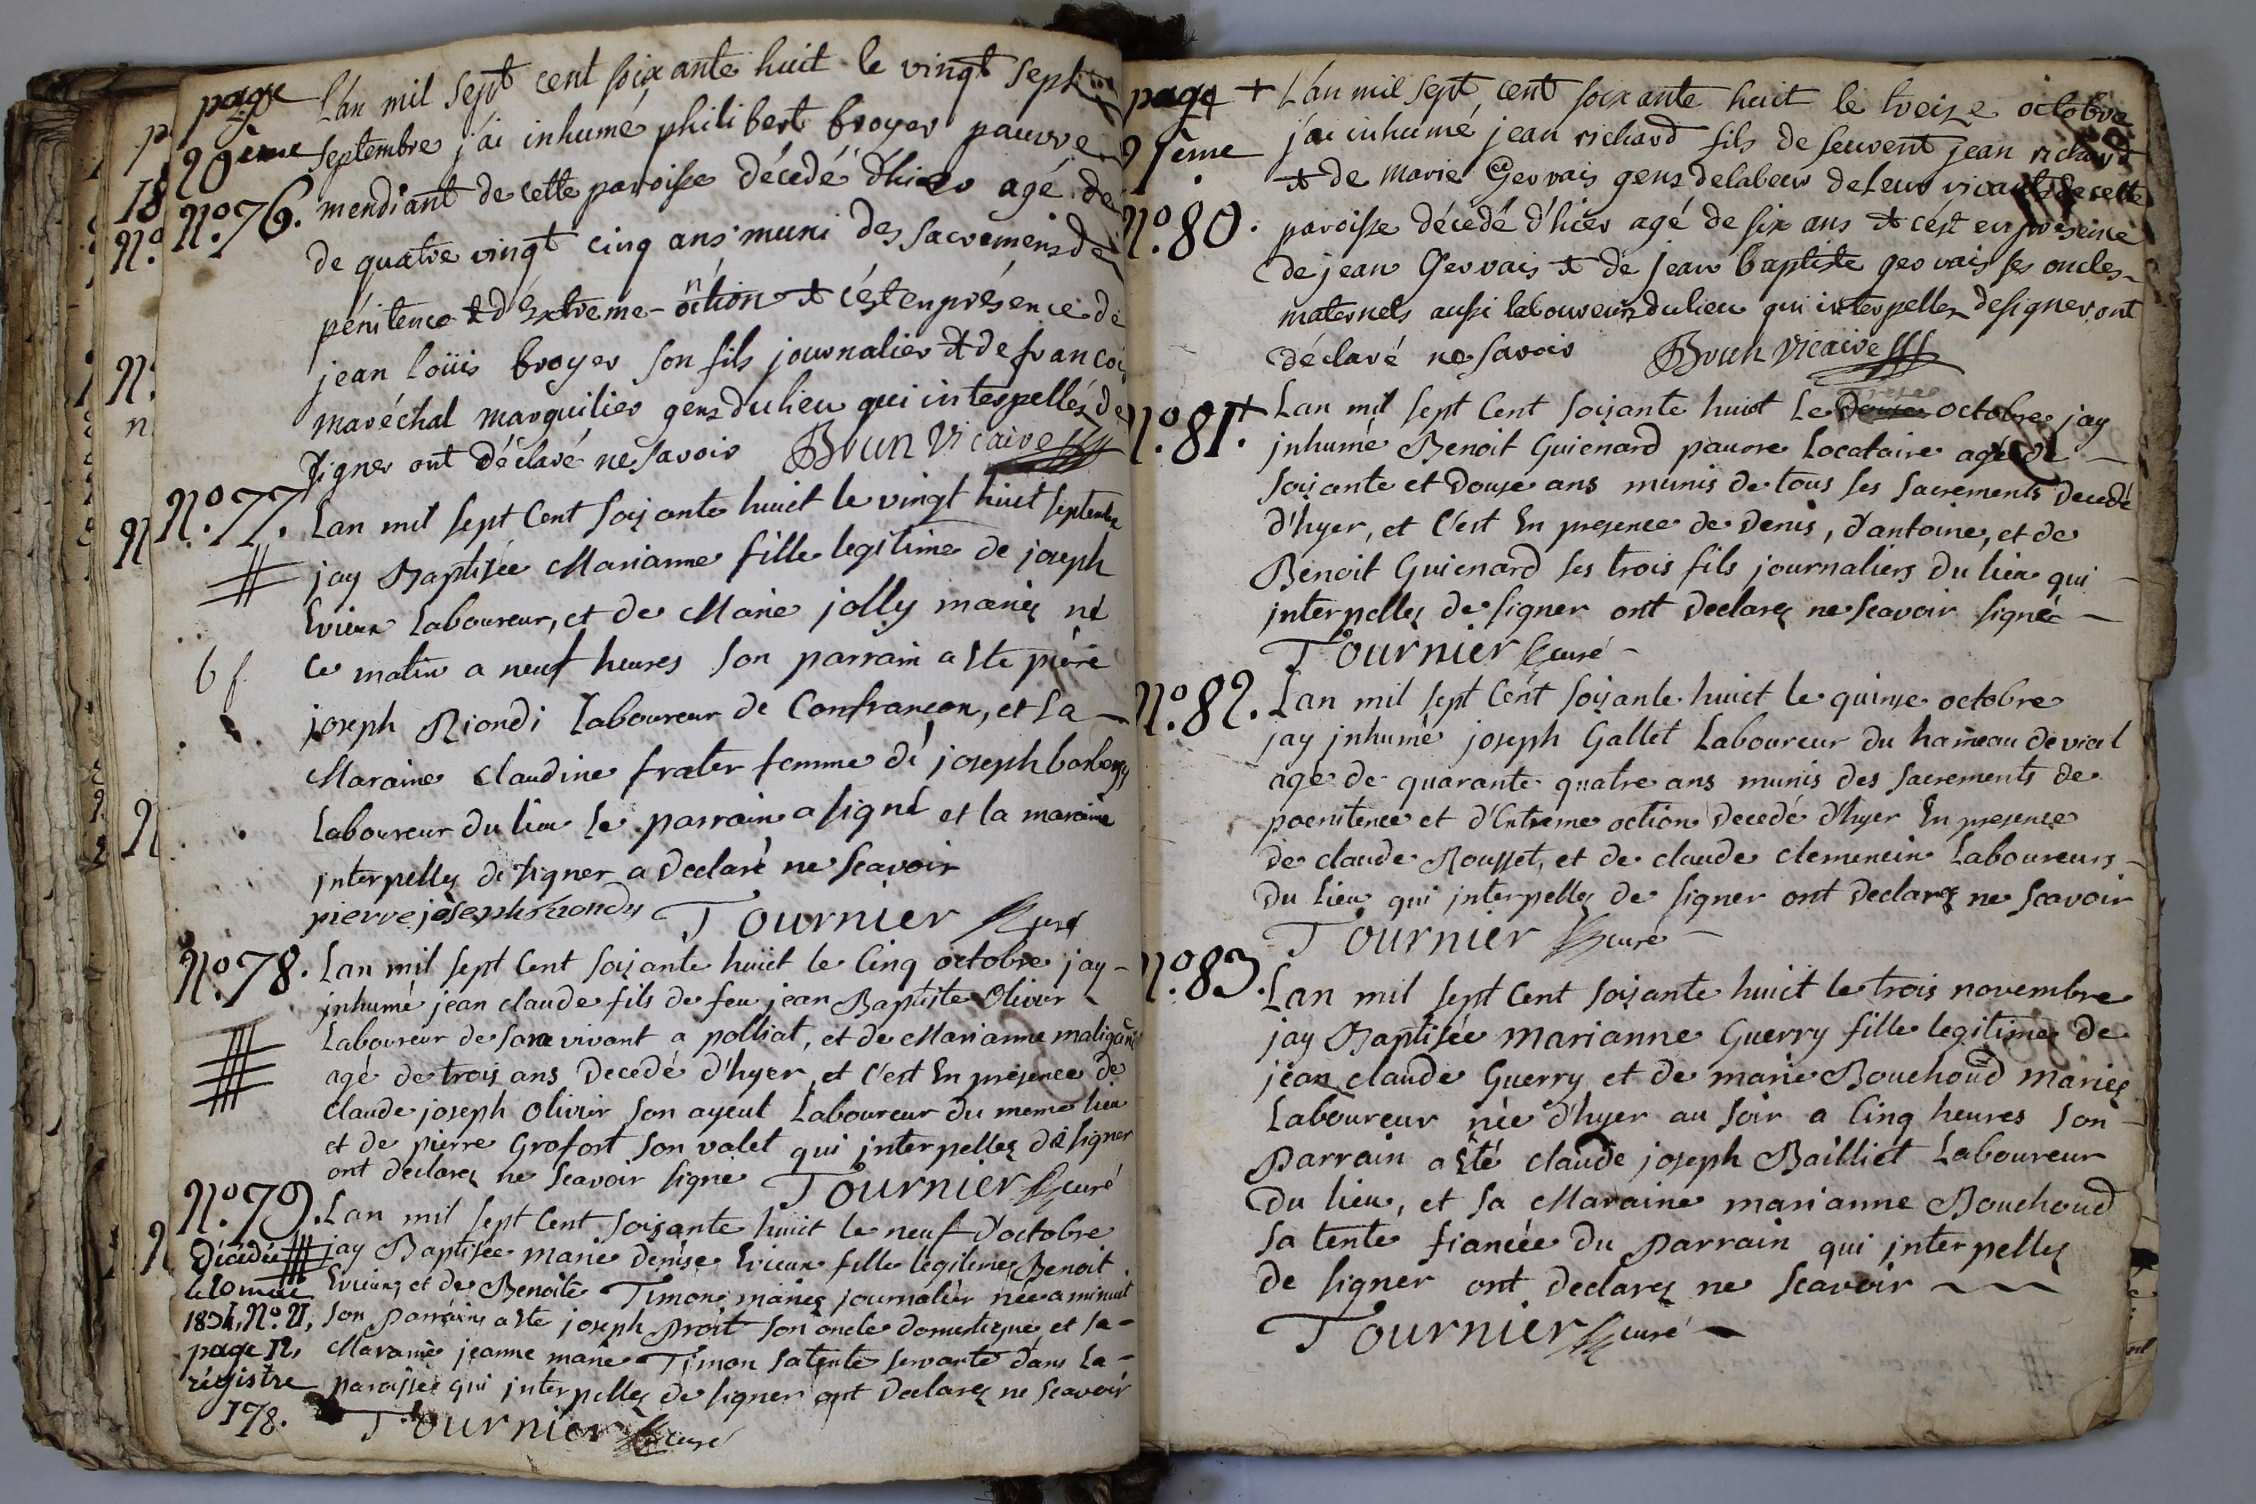 page
20ème
N°.76.
L'an mil sept cent soixante huit le vingt sept
septembre j'ai inhumé philibert broyer pauvre
mendiant de cette paroisse décedé d'hier agé de
de quatre vingt cinq ans muni des sacremens de
pénitence & d'extreme-onction & c'est en présence de
jean loüis broyer son fils journalier & de francois
maréchal marguilier gens du lieu qui interpellés de
signer ont déclaré ne savoir Brun vicaire
N°.77.
Lan mil sept Cent soixante huict le vingt huit septembre
jay Baptisée Marianne fille legitime de joseph
Evieux Laboureur, et de Marie jolly mariez né
ce matin a neuf heures son parrain a Ete piere
joseph Riondi Laboureur de Confrançon, et sa
Maraine claudine frater femme de joseph
Laboureur du lieu le parrain a signé et la maraine
interpellez de signer a declaré ne scavoir
pierre joseph riondy Tournier curé
N°.78.
Lan mil sept Cent soixante huict le Cinq octobre jay
inhumé jean claude fils de feu jean Baptiste Olivier
Laboureur de son vivant a polliat, et de Marianne
agé de trois ans Decedé d'hyer, et C'est En presence de
Claude joseph Olivier son ayeul Laboureur du meme lieu
et de pierre Grofort son valet qui interpellez de signer
ont declarez ne scavoir signe Tournier curé
N°.79.
Lan mil sept Cent soixante huict le neuf d'octobre
jay Baptisée marie denise Evieux fille legitime Benoit
Evieux, et de Benoite Timon mariez journalier née a minuit
son parrain a Ete joseph Proit son oncle domestique, et sa
Maraine jeanne marie Timon sa tente servante dans la
paroisse qui interpellez de signer ont declarez ne scavoir
Tournier curé
Décédée
le 10 mai
1834, N°. 21,
page 12,
régistre
178.
page
21ème
N°.80.
+ L'an mil sept cent soixante huit le treize octobre
j'ai inhumé jean richard fils de feu vent jean richard
& de marie Gervais gens de labeur de leur vivant de cette
paroisse décedé d'hier agé de six ans & c'est en présence
de jean Gervais & de jean baptiste gervais ses oncles
maternels aussi laboureurs du lieu qui interpellez de signer ont
déclaré ne savoir Brun vicaire
N°.81.
+ Lan mil sept Cent soixante huict le treize octobre jay
inhumé Benoit Guienard pauvre Locataire agé de
soixante et douze ans munis de tous ses sacrements Decedé
d'hyer, et C'est En presence de Denis, d'antoine, et de
Benoit Guienard ses trois fils journaliers du lieu qui
interpellez de signer ont declarez ne scavoir signer
Tournier curé
N°.82.
Lan mil sept Cent soixante huict le quinze octobre
jay inhumé joseph Gallet Laboureur du hameau de vial
age de quarante quatre ans munis des sacrements de
poenitence et d'Entreme oction Decedé d'hyer En presence
de claude Rousset, et de claude clemencin Laboureurs
du lieu qui interpellez de signer ont declarez ne scavoir
Tournier curé
N°.83.
Lan mil sept Cent soixante huict le trois novembre
jay Baptisée Marianne Guerry fille legitime de
jean claude Guerry et de marie Bouchoud mariez
Laboureur née d'hyer au soir a Cinq heures son
Parrain a Eté claude joseph Bailliet Laboureur
du lieu, et sa Maraine marianne Bouchoud
sa tente fiancée du Parrain qui interpellez
de signer ont declarez ne scavoir
Tournier curé